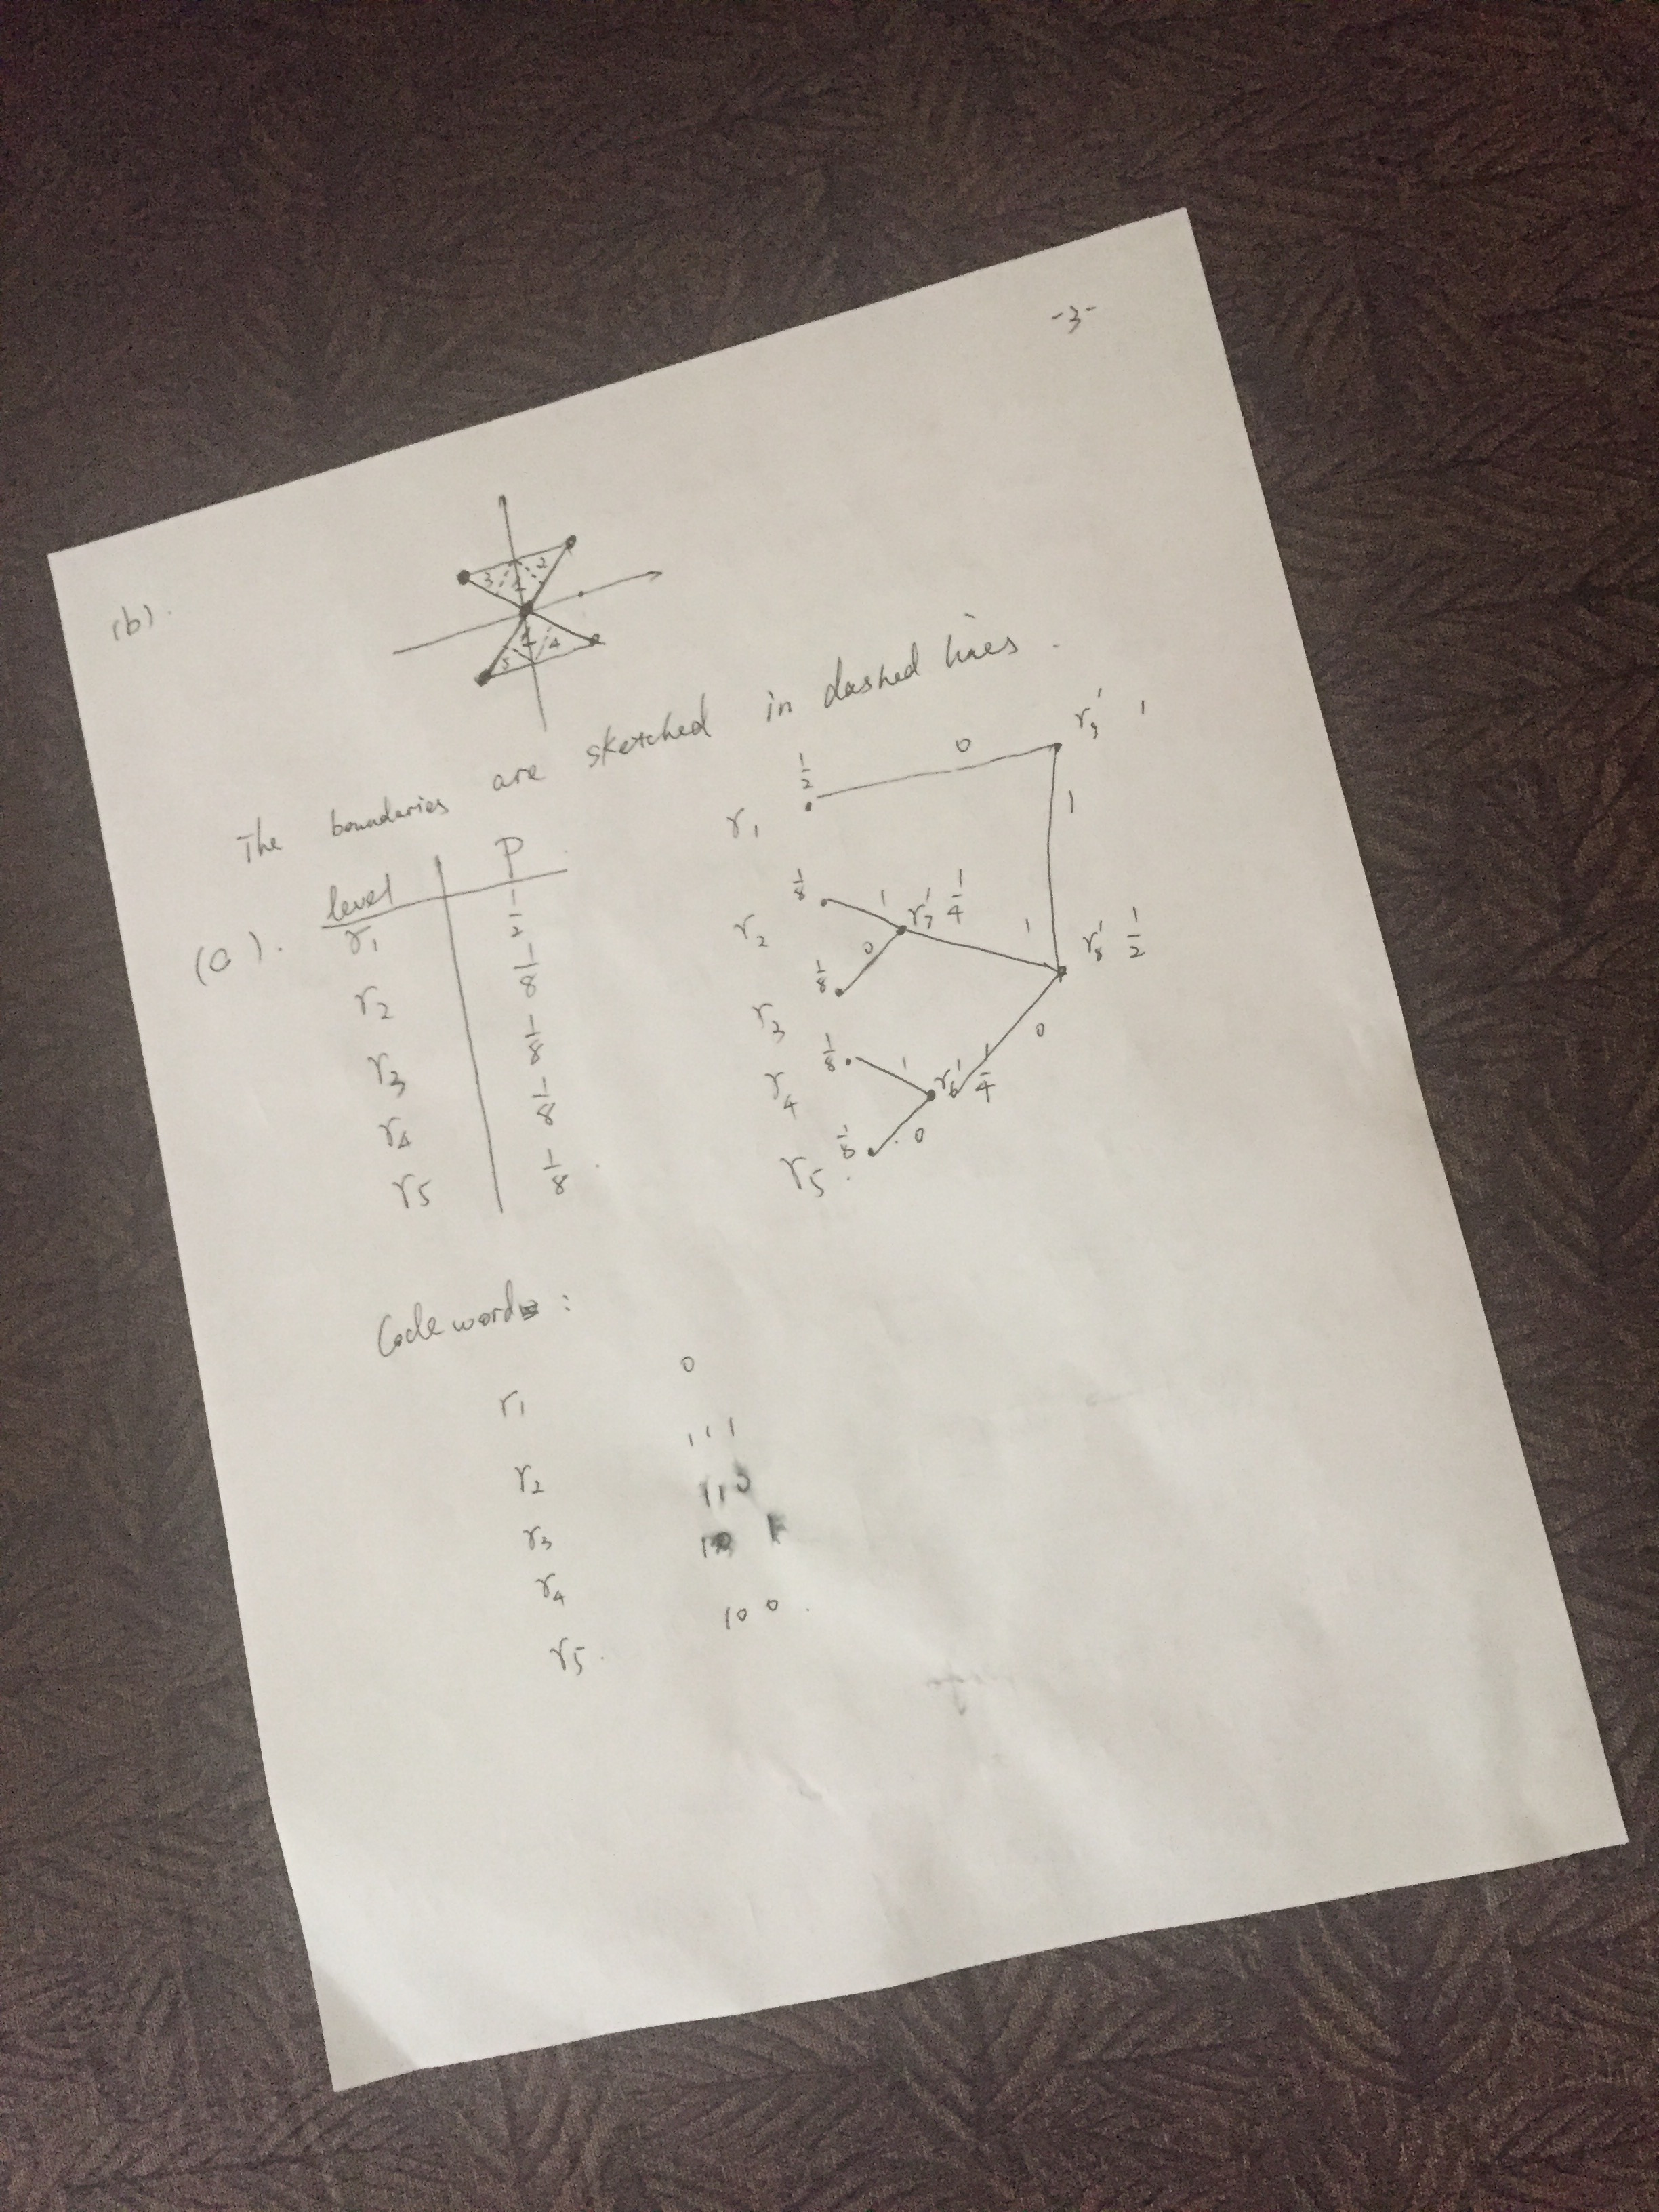 -3-
(b).
3 2
1
1
5 4
The boundaries are sketched in dashed lines.
(c). level P
r1 1/2
r2 1/8
r3 1/8
r4 1/8
r5 1/8
r1 1/2 0 r9' 1
1
r2 1/8 1 r7' 1/4 1 r8' 1/2
0
r3 1/8
0
r4 1/8 1 r6' 1/4
r5. 1/8 0
Codewords:
r1 0
r2 111
r3 110
r4 10 1
r5. 100.